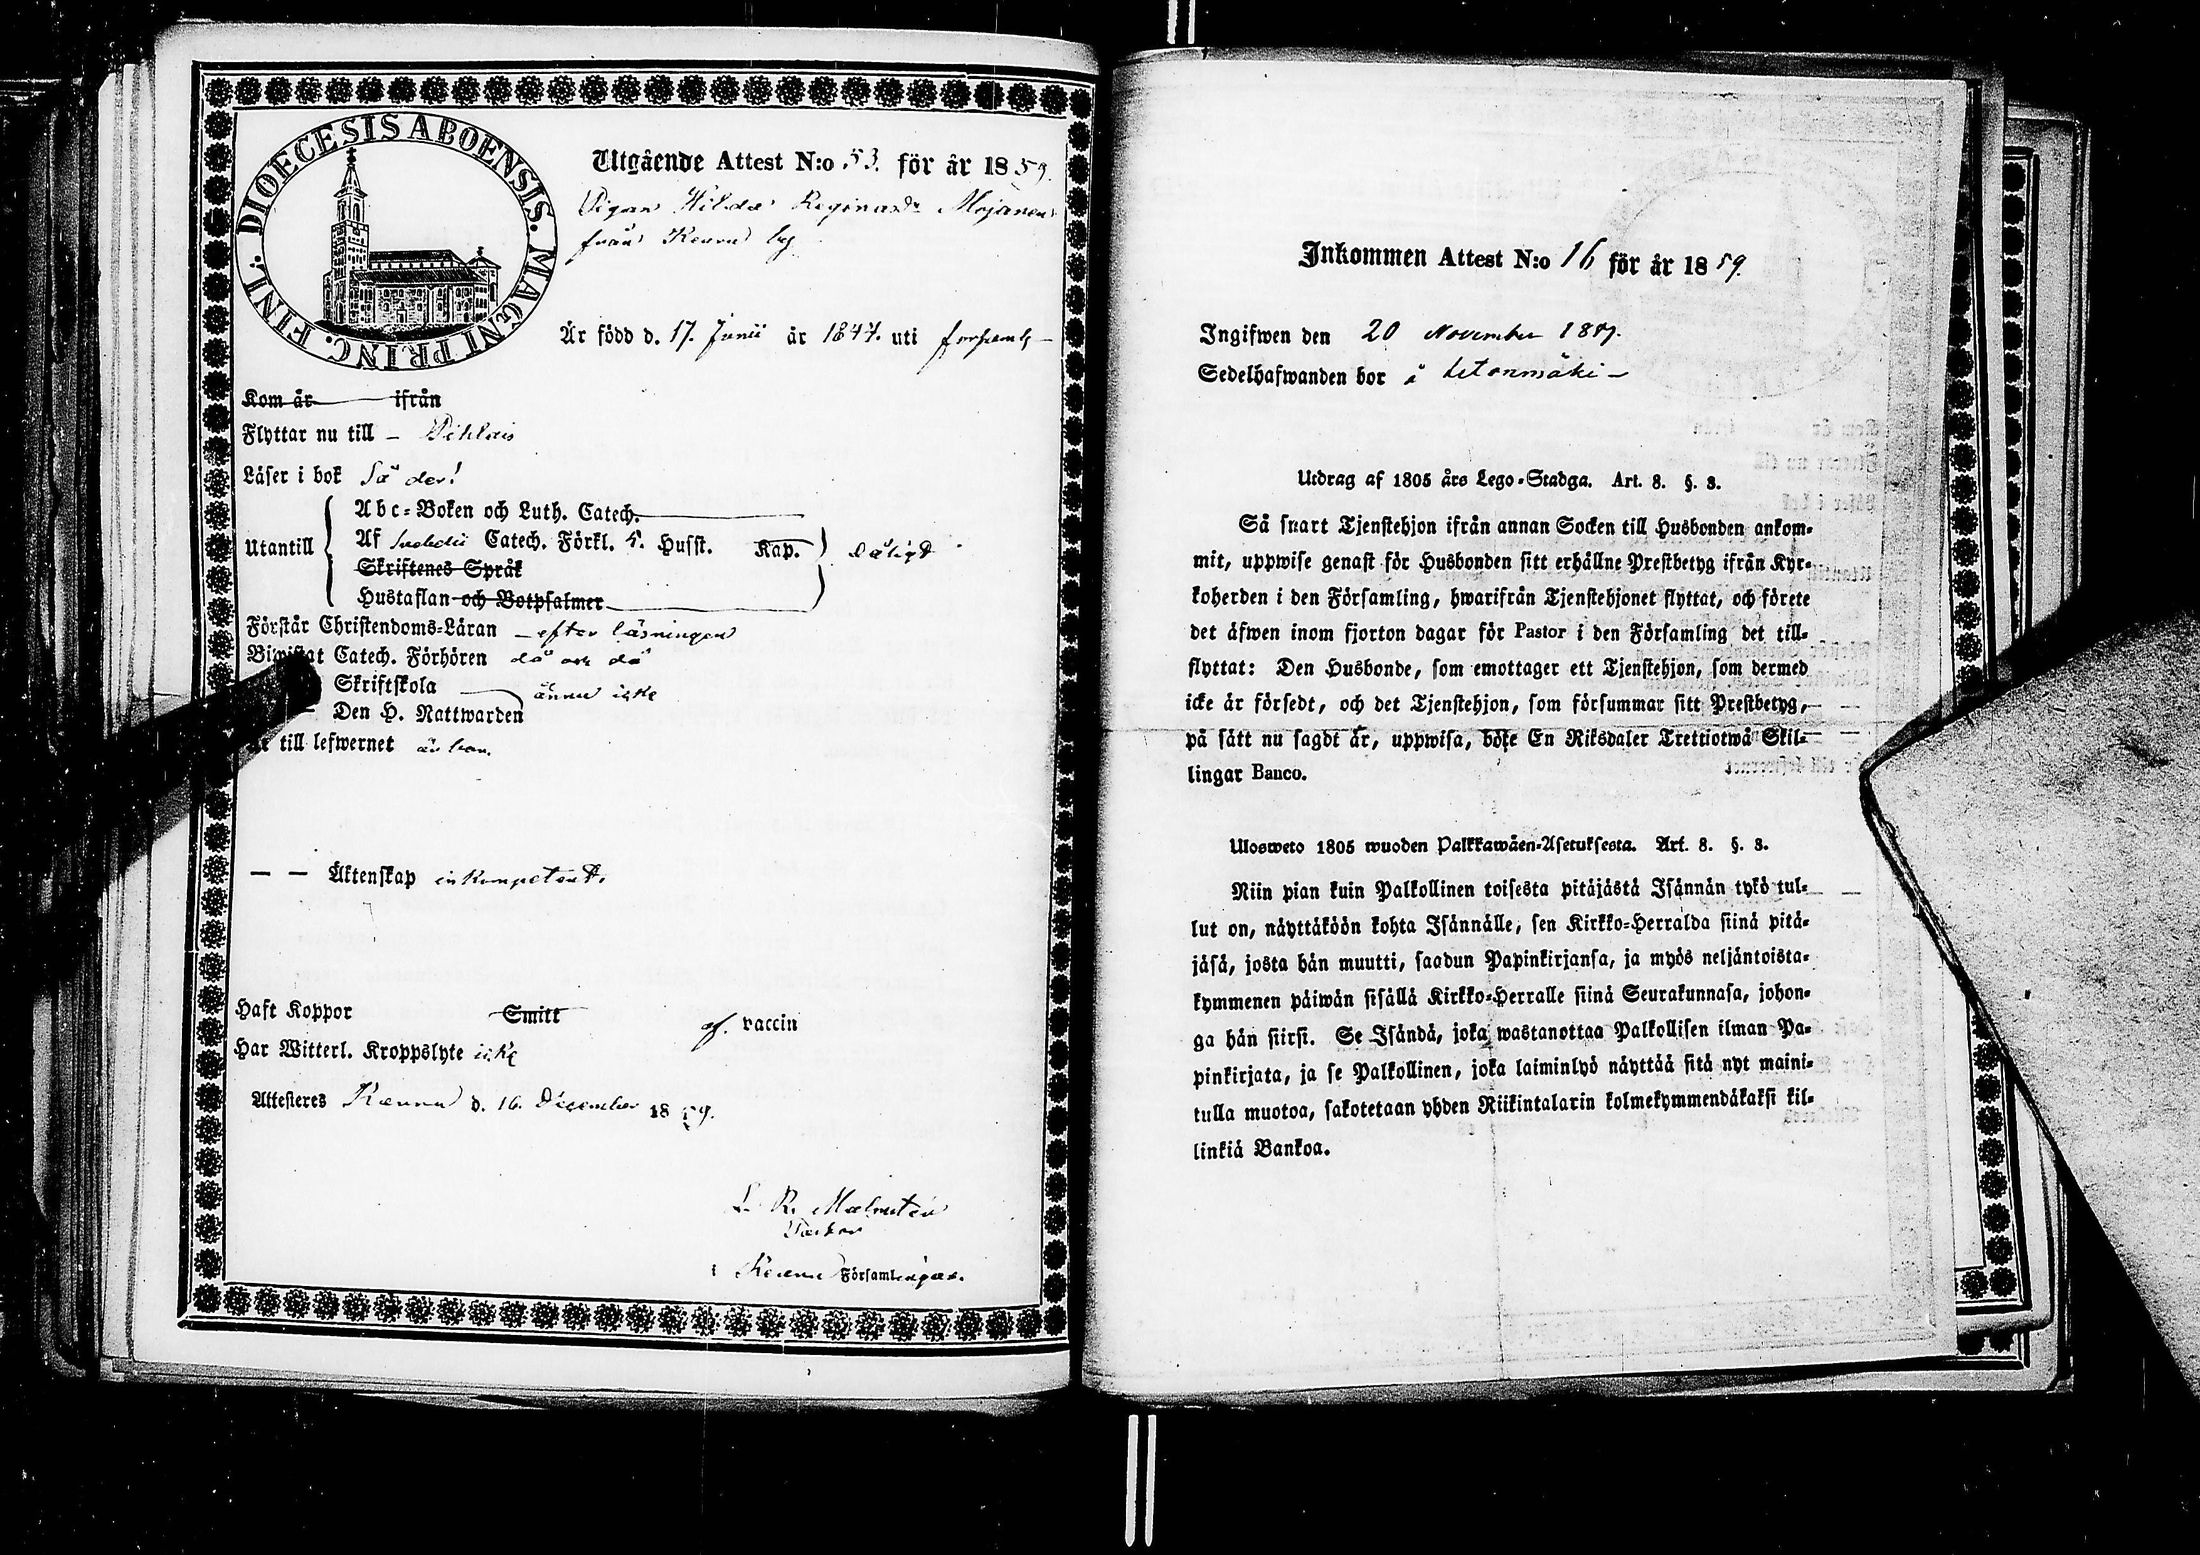 DIOECESIS ABOENSIS. MAGNI PRINC. FINL.
Utgående Attest N:o 53. för år 1859.
Pigan Hilda Regina Mojanen
från Keuru by
Är född d. 17. Junii år 1844. uti förseml
Kom år ifrån
Flyttar nu till – Pihlais
Läser i bok Så der!
Utantill
Abc-Boken och Luth. Catech.
Af Svebelii Catech. Förkl. 5. Husst. Kap. dåligt
Skriftenes Språk
Hustaflan och Botpsalmer
Förstår Christendoms-Läran – efter läsningen
Biwistat Catech. Förhören då och då
Skriftskola ännu icke
Den H. Nattwarden
till lefwernet
— — Äktenskap inkompetent.
Haft Koppor Smitt af. vaccin
Har Witterl. Kroppslyte icke
Attesteres Keuru d. 16. December 1859.
L. R. Malmstén
Pastor
i Keuru Församlingar.
Inkommen Attest N:o 16 för år 1859.
Ingifwen den 20 November 1859.
Sedelhafwanden bor å
Utdrag af 1805 års Lego-Stadga. Art. 8. §. 3.
Så snart Tjenstehjon ifrån annan Socken till Husbonden ankom-
mit, uppwise genast för Husbonden sitt erhållne Prestbetyg ifrån Kyr-
koherden i den Församling, hwarifrån Tjenstehjonet flyttat, och förete
det äfwen inom fjorton dagar för Pastor i den Församling det till-
flyttat: Den Husbonde, som emottager ett Tjenstehjon, som dermed
icke är försedt, och det Tjenstehjon, som försummar sitt Prestbetyg,
på sätt nu sagdt är, uppwisa, böte En Riksdaler Trettiotwå Skil-
lingar Banco.
Ulosweto 1805 wuoden Palkkawäen-Asetuksesta. Art. 8. §. 3.
Niin pian kuin Palkollinen toisesta pitäjästä Isännän tykö tul-
lut on, näyttäköön kohta Isännälle, sen Kirkko-Herralda siinä pitä-
jäsä, josta hän muutti, saadun Papinkirjansa, ja myös neljäntoista-
kymmenen päiwän sisällä Kirkko-Herralle siinä Seurakunnasa, johon-
ga hän siirsi. Se Isändä, joka wastanottaa Palkollisen ilman Pa-
pinkirjata, ja se Palkollinen, joka laiminlyö näyttää sitä nyt maini-
tulla muotoa, sakotetaan yhden Riikintalarin kolmekymmendäkaksi kil-
linkiä Bankoa.